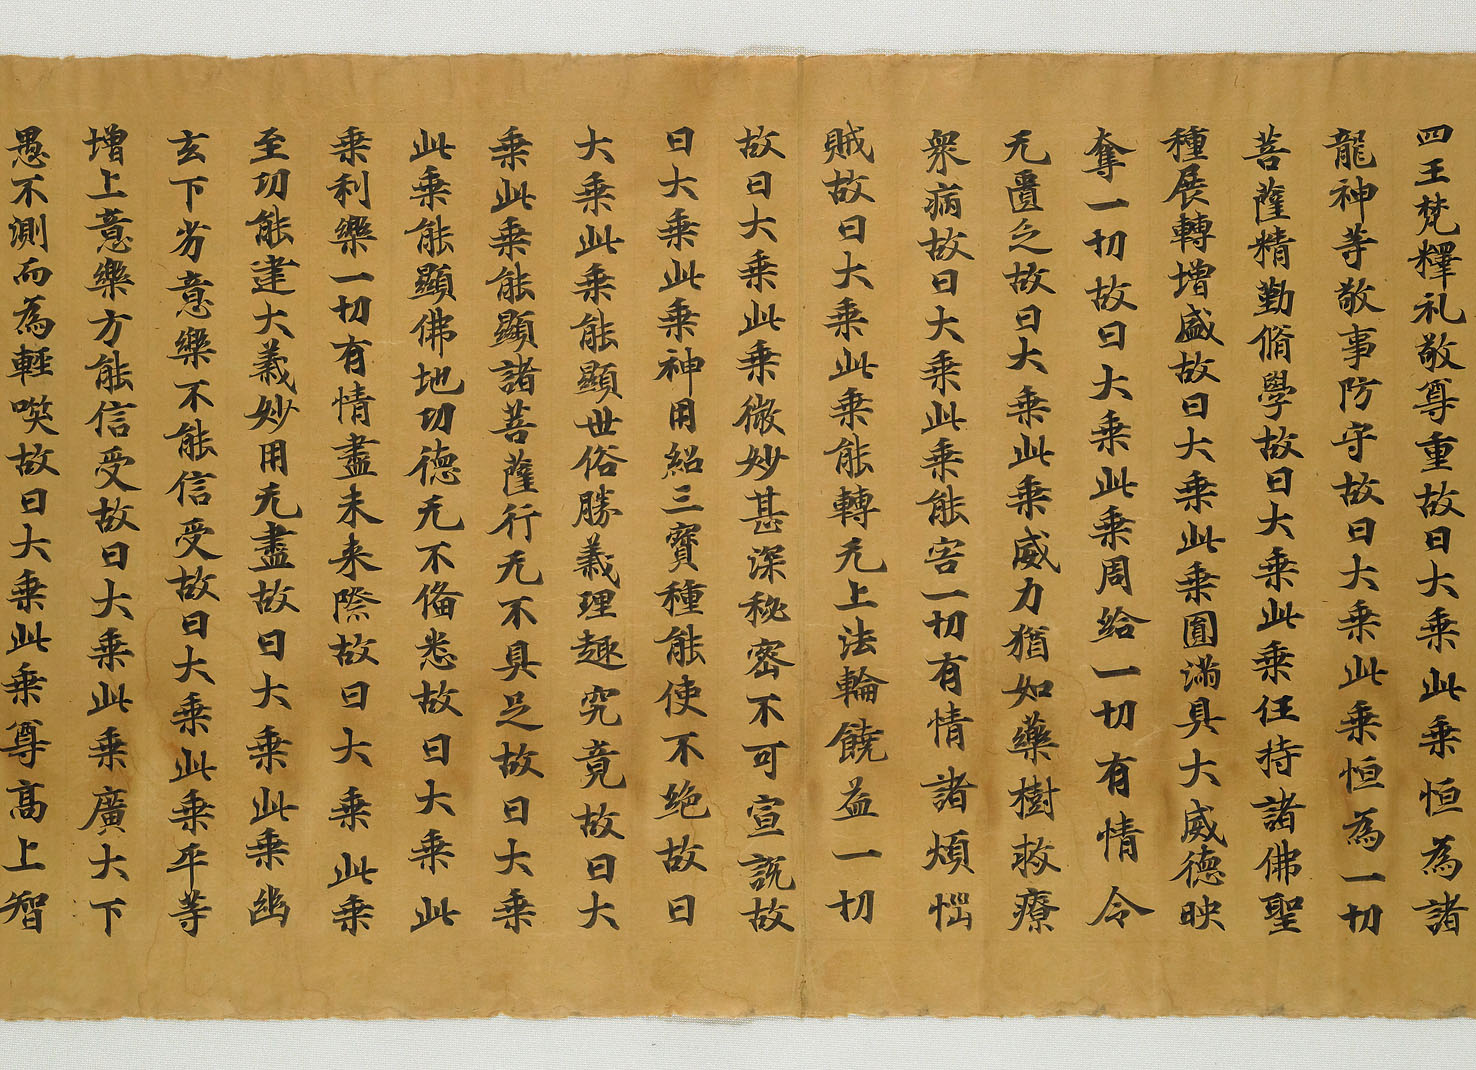 四王梵釋礼敬尊重故曰大乘此乘恒為諸
龍神等敬事防守故曰大乘此乘恒為一切
菩薩精勤脩學故曰大乘此乘任持諸佛聖
種展轉增盛故曰大乘此乘圓滿具大威德映
奪一切故曰大乘此乘周給一切有情令
无匱乏故曰大乘此乘威力猶如藥樹救療
眾病故曰大乘此乘能害一切有情諸煩惱
賊故曰大乘此乘能轉无上法輪饒益一切
故曰大乘此乘微妙甚深秘密不可宣說故
曰大乘此乘神用紹三寶種能使不絕故曰
大乘此乘能顯世俗勝義理趣究竟故曰大
乘此乘能顯諸菩薩行无不具足故曰大乘
此乘能顯佛地功德无不備悉故曰大乘此
乘利樂一切有情盡未来際故曰大乘此乘
至功能建大義妙用无盡故曰大乘此乘幽
玄下劣意樂不能信受故曰大乘此乘平等
增上意樂方能信受故曰大乘此乘廣大下
愚不測而為輕㗛故曰大乘此乘尊高上智